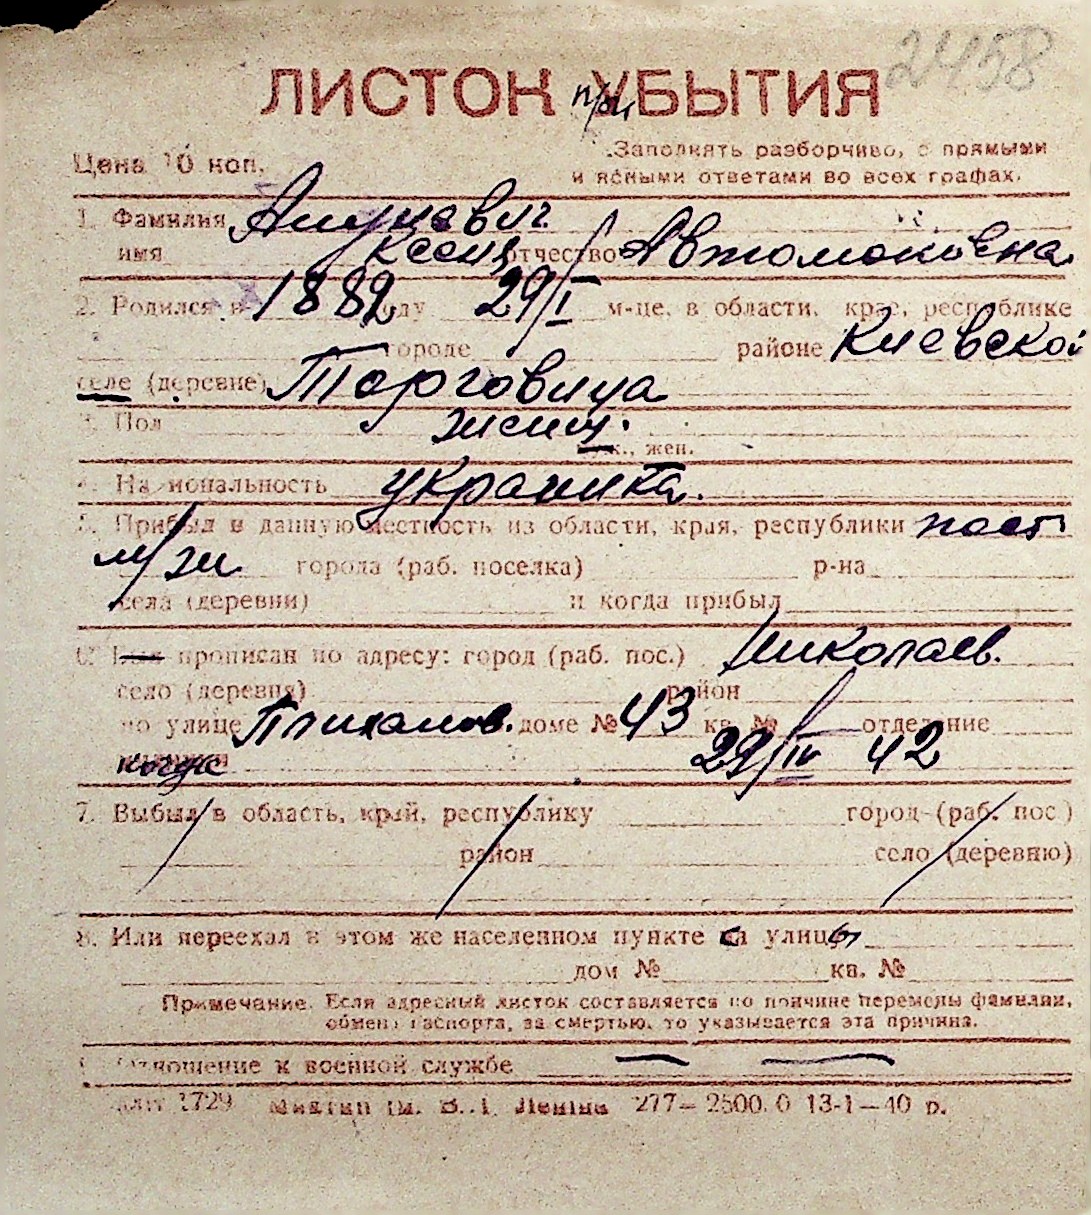 2458
ЛИСТОК при УБЫТИЯ
Цена 10 коп.
Заполнять разборчиво, с прямыми
и ясными ответами во всех графах.
1. Фамилия
имя Ксен отчество Автомоновна
2. Родился в 1882 году 29/I м-це, в области, крае, республике
городе районе Киевской
селе (деревне) Торговица
3. Пол женщ.
муж., жен.
4. Национальность украинка.
5. Прибыл в данную местность из области, края, республики пост
м/ж города (раб. поселка) р-на
села (деревни) и когда прибыл
6. прописан по адресу: город (раб. пос.) Николаев.
село (деревня) район
по улице Плиханов. доме № 43 кв. № отделение
когда 29/IV 42
7. Выбыл в область, край, республику город (раб. пос.)
район село (деревню)
8. Или переехал в этом же населенном пункте с улицы
дом № кв. №
Примечание. Если адресный листок составляется по причине перемены фамилии,
обмена паспорта, за смертью, то указывается эта причина.
9. Отношение к военной службе — —
1729 Ленина 277—2500.0 13-1—40 р.